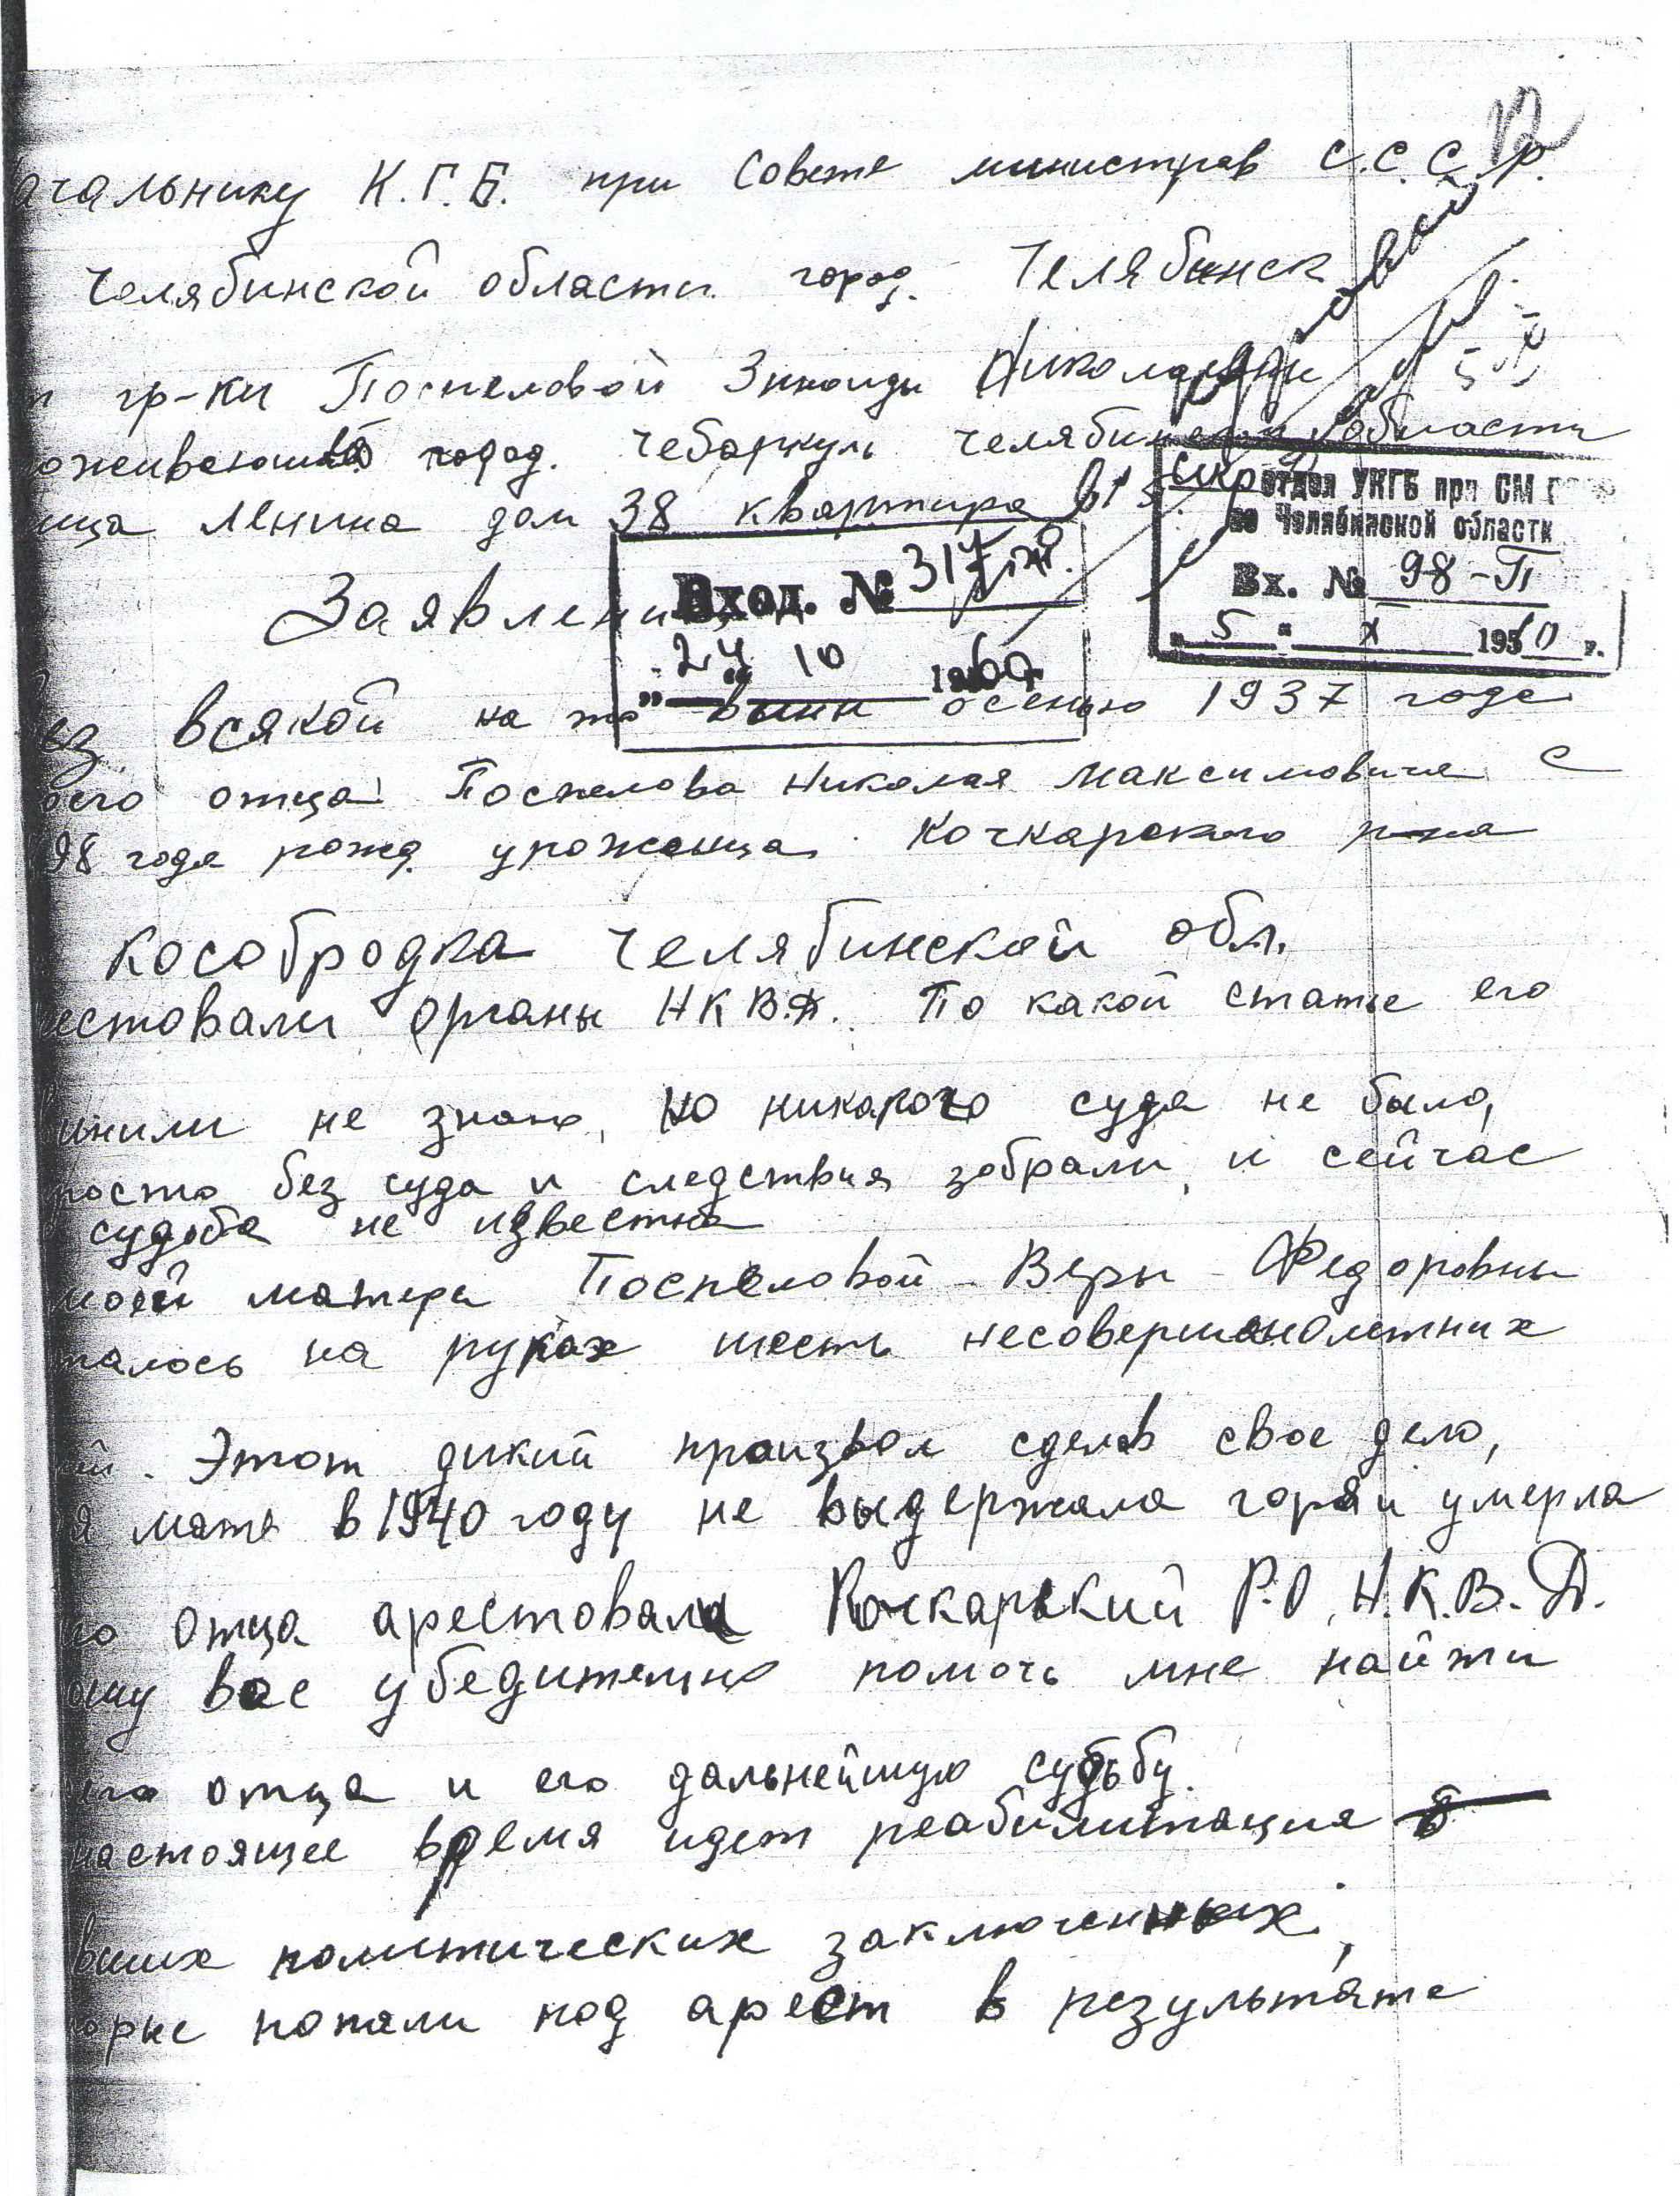 12
ачальнику К.Г.Б. при Совете министров С.С.С.Р.
Челябинской области город. Челябинск
гр-ки Поспеловой Зинаиды Николаевны
оживающей город. Чебаркуль Челябинской области
ица Ленина дом 38 квартира
отдел УКГБ при СМ
по Челябинской области
Вх. № 98-П
"5" X 1960 г.
Вход. № 317
"24" 10 1960 г
Заявлени
ез всякой на то вины осенью 1937 года
оего отца Поспелова Николая Максимовича с
98 года рожд. уроженца Кочкарского р-на
Кособродка Челябинской обл.
естовали органы НКВД. По какой статье его
инили не знаю, но никакого суда не было,
росто без суда и следствия забрали, и сейчас
судьба не известна
моей матери Поспеловой - Веры - Федоровны
талось на руках шесть несовершенолетних
ей. Этот дикий произвол сделав свое дело,
я мать в 1940 году не выдержала горя и умерла
го отца арестовали Кочкарький Р.О. Н.К.В.Д.
ошу вас убедительно помочь мне найти
его отца и его дальнейшую судьбу.
настоящее время идет реабилитация
вших политических заключенных,
орые попали под арест в результате